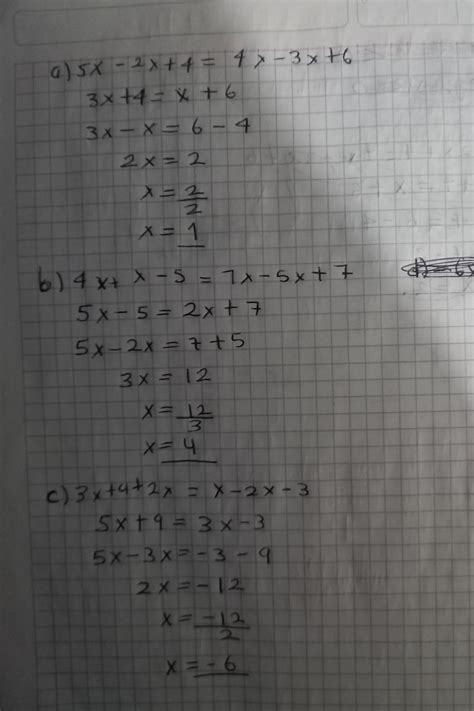 a) 5x - 2x + 4 = 4x - 3x + 6
3x + 4 = x + 6
3x - x = 6 - 4
2x = 2
x = 2/2
x = 1
b) 4x + x - 5 = 7x - 5x + 7
5x - 5 = 2x + 7
5x - 2x = 7 + 5
3x = 12
x = 12/3
x = 4
c) 3x + 9 + 2x = x - 2x - 3
5x + 9 = 3x - 3
5x - 3x = -3 - 9
2x = -12
x = -12/2
x = -6